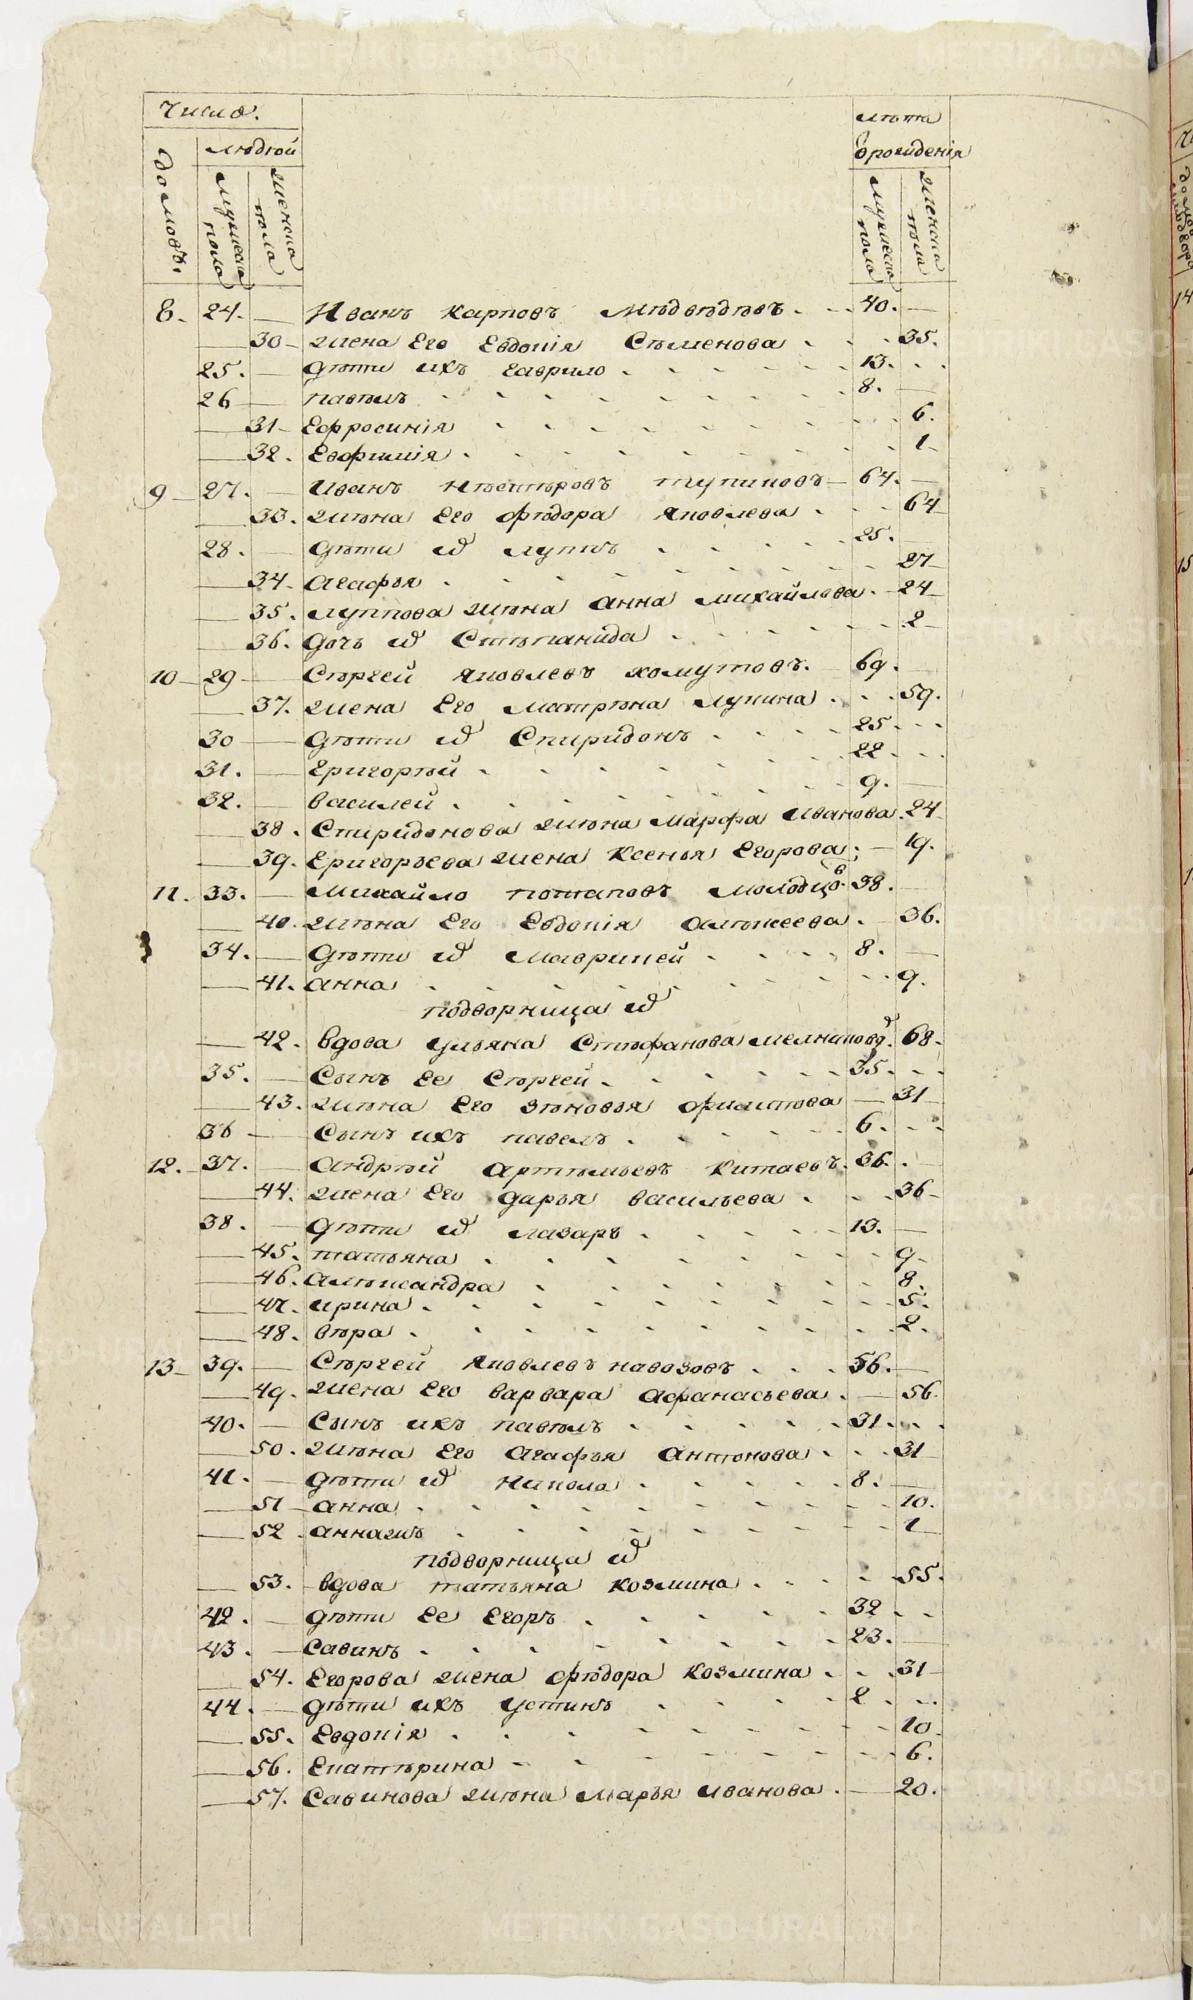 Число.
лѣта
людѣй
ѿ рождениія
домовъ.
мужеска пола
женска пола
мужеска пола
женска пола
8. 24. — Иванъ Карповъ Мѣдвѣдѣвъ. 40. —
— 30 жена Его Евдокія Сѣменова 35.
25. — дѣти ихъ гаврило 13.
26 — павѣлъ 8. —
— 31 Ефросинія 6.
— 32. Евфимія 1
9 27. — Иванъ нѣстѣровъ тупиковъ 64. —
— 33. жѣна Его фѣдора яковлева 64
28. — дѣти их лупъ 25. —
— 34. агафья 27
— 35. луппова жѣна анна михайлова 24
— 36. дочь их Стѣпанида 2
10 29 — Сѣргей яковлевъ хомутовъ. 69. —
— 37. жена Его матрѣна лукина 59.
30 — дѣти их Спиридонъ 25
31. — григорѣй 22
32. — василей 9. —
— 38. Спиридонова жѣна марфа Иванова 24
— 39. григорьева жена Ксенья Егорова 19.
11. 33. — михайло потаповъ молодцов 38. —
— 40. жѣна Его Евдокія алѣксеева 36.
34. — дѣти их маврикей 8. —
— 41. анна 9.
подворница их
— 42. вдова ульяна Стѣфанова мелникова 68.
35. — Сынъ Ее Сѣргей 35.
— 43. жѣна Его зѣновья филипова 31
36 — Сынъ ихъ павелъ 6.
12. 37. — андрѣй артѣмьевъ китаевъ. 36. —
— 44. жена Его дарья васильева 36
38. — дѣти их лазарь 13. —
— 45. татьяна 9
— 46. алѣксандра 8.
— 47. ирина 5.
— 48. вѣра 2.
13 39. — Сѣргей яковлевъ навозовъ 56. —
— 49. жена Его варвара афанасьева 56.
40. — Сынъ ихъ павѣлъ 31.
— 50. жѣна Его агафья антонова 31
41. — дѣти их никола 8. —
— 51 анна 10.
— 52 аннажъ 1
подворница их
— 53. вдова татьяна козмина 55.
42. — дѣти Ее Егоръ 32
43. — Савинъ 23. —
— 54. Егорова жена фѣдора козмина 31
44. — дѣти ихъ устинъ 2
— 55. Евдокія 10.
— 56. Екатѣрина 6.
— 57. Савинова жѣна марья иванова 20.
METRIKI.GASO-URAL.RU